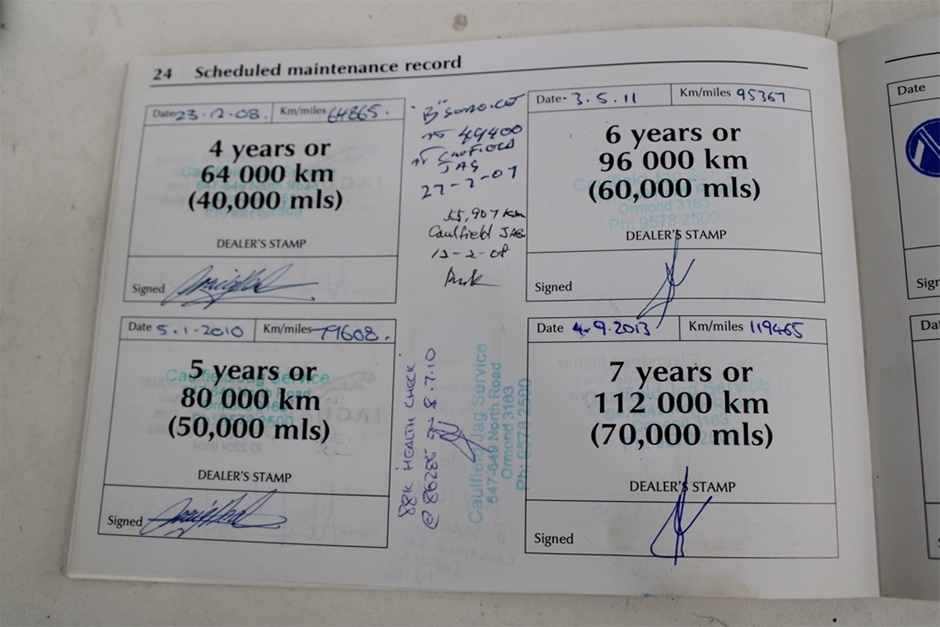 24 Scheduled maintenance record
Date 23.12.08. Km/miles 64865.
4 years or
64 000 km
(40,000 mls)
Caulfield Jag Service
647-649 North Road
Ormond 3163
Ph: 9578 2500
DEALER'S STAMP
Signed
Date 5.1.2010 Km/miles 79608.
5 years or
80 000 km
(50,000 mls)
Caulfield Jag Service
Ormond 3163
DEALER'S STAMP
Signed
"B" SERVICE
49400
CAULFIELD
JAG
27-2-07
55,907 km
Caulfield JAG
12-2-08
88K HEALTH CHECK
@ 86285 8.7.10
Caulfield Jag Service
647-649 North Road
Ormond 3163
Ph: 9578 2500
Date 3.5.11 Km/miles 95367
6 years or
96 000 km
(60,000 mls)
Ormond 3163
Ph: 9578 2500
DEALER'S STAMP
Signed
Date 4.9.2013 Km/miles 119465
7 years or
112 000 km
(70,000 mls)
DEALER'S STAMP
Signed
Date